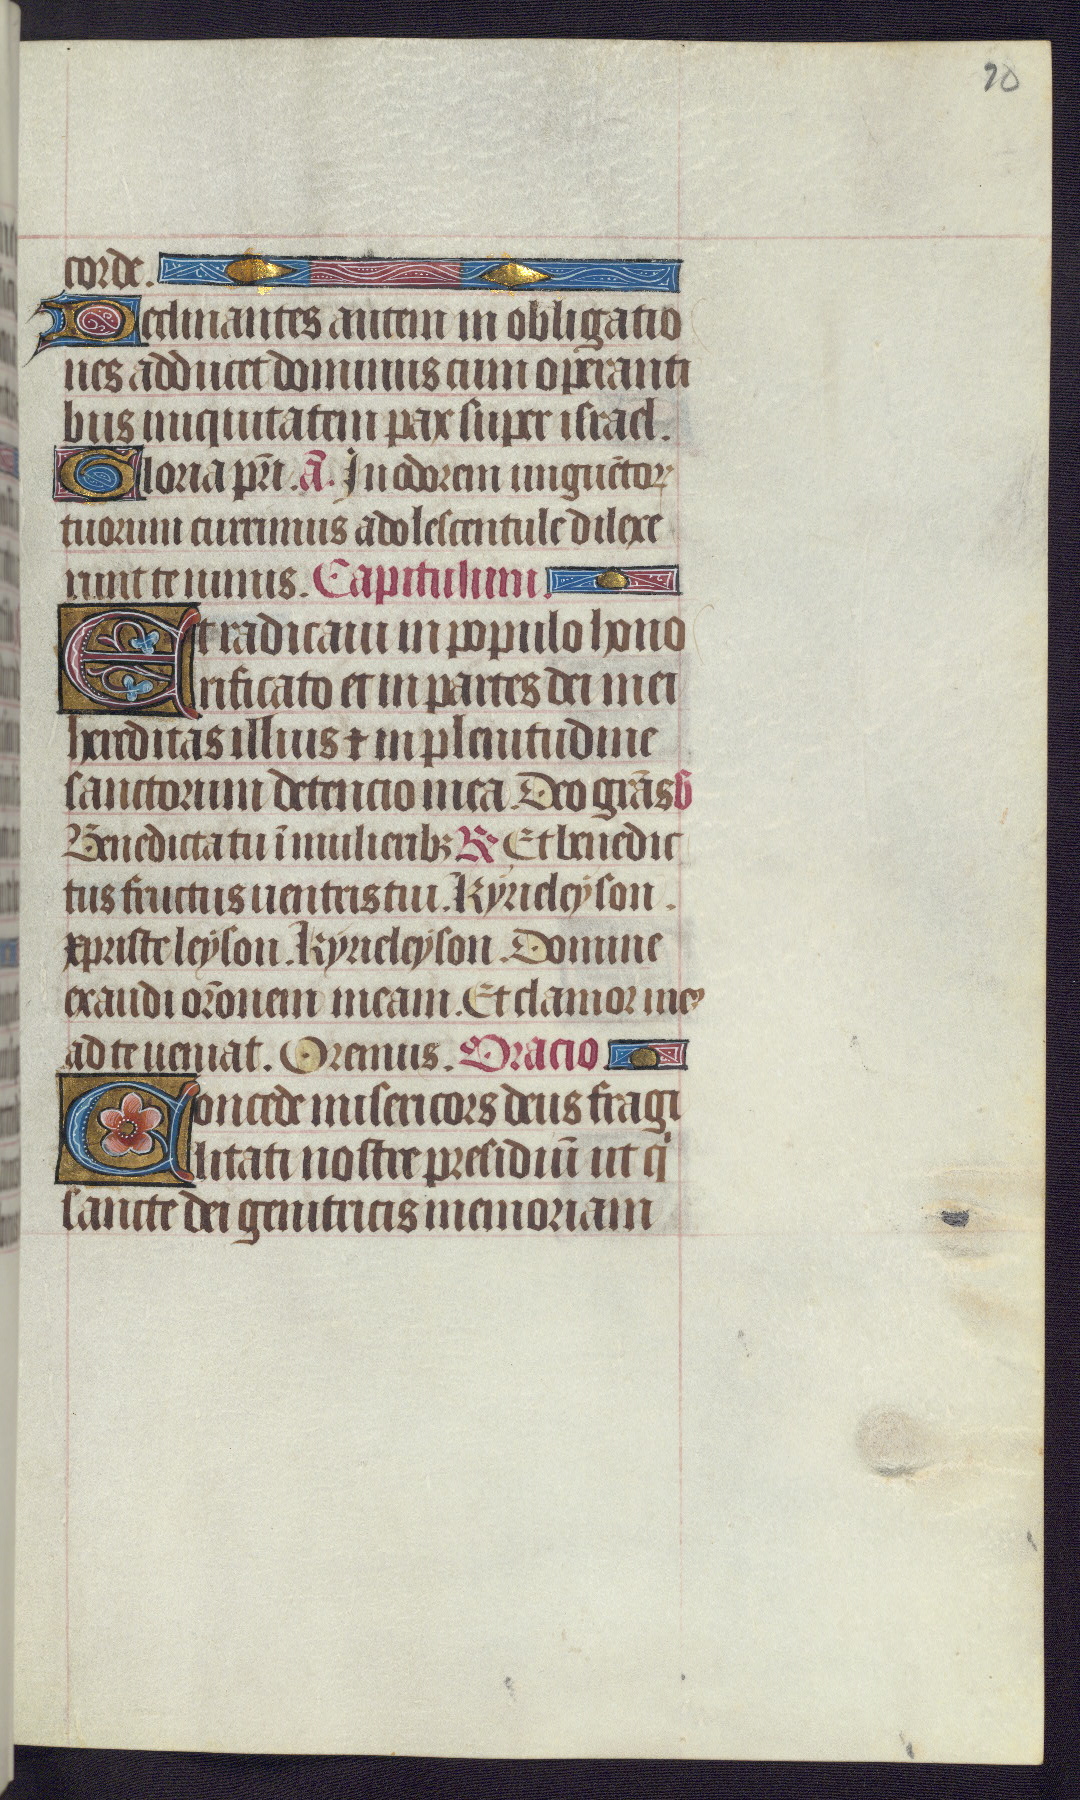 20
corde.
Declinantes autem in obligatio
nes adducet dominus cum operanti
bus iniquitatem pax super israel.
Gloria pr̄i. ā. In odorem unguētoꝝ
tuorum currimus adolescentule dilexe
runt te nimis. Capitulum.
Et radicaui in populo hono
rificato et in partes dei mei
hereditas illius ⁊ in plenitudine
sanctorum detencio mea. Deo grās ꝟ
Benedicta tu ī mulieribꝫ ℟ Et benedic
tus fructus uentris tui. Kyrieleyson.
xpriste leyson. Kyrieleyson. Domine
exaudi orōnem meam. Et clamor meꝰ
ad te ueniat. Oremus. Oracio
Concede misericors deus fragi
litati nostre presidiū ut q
sancte dei genitricis memoriam